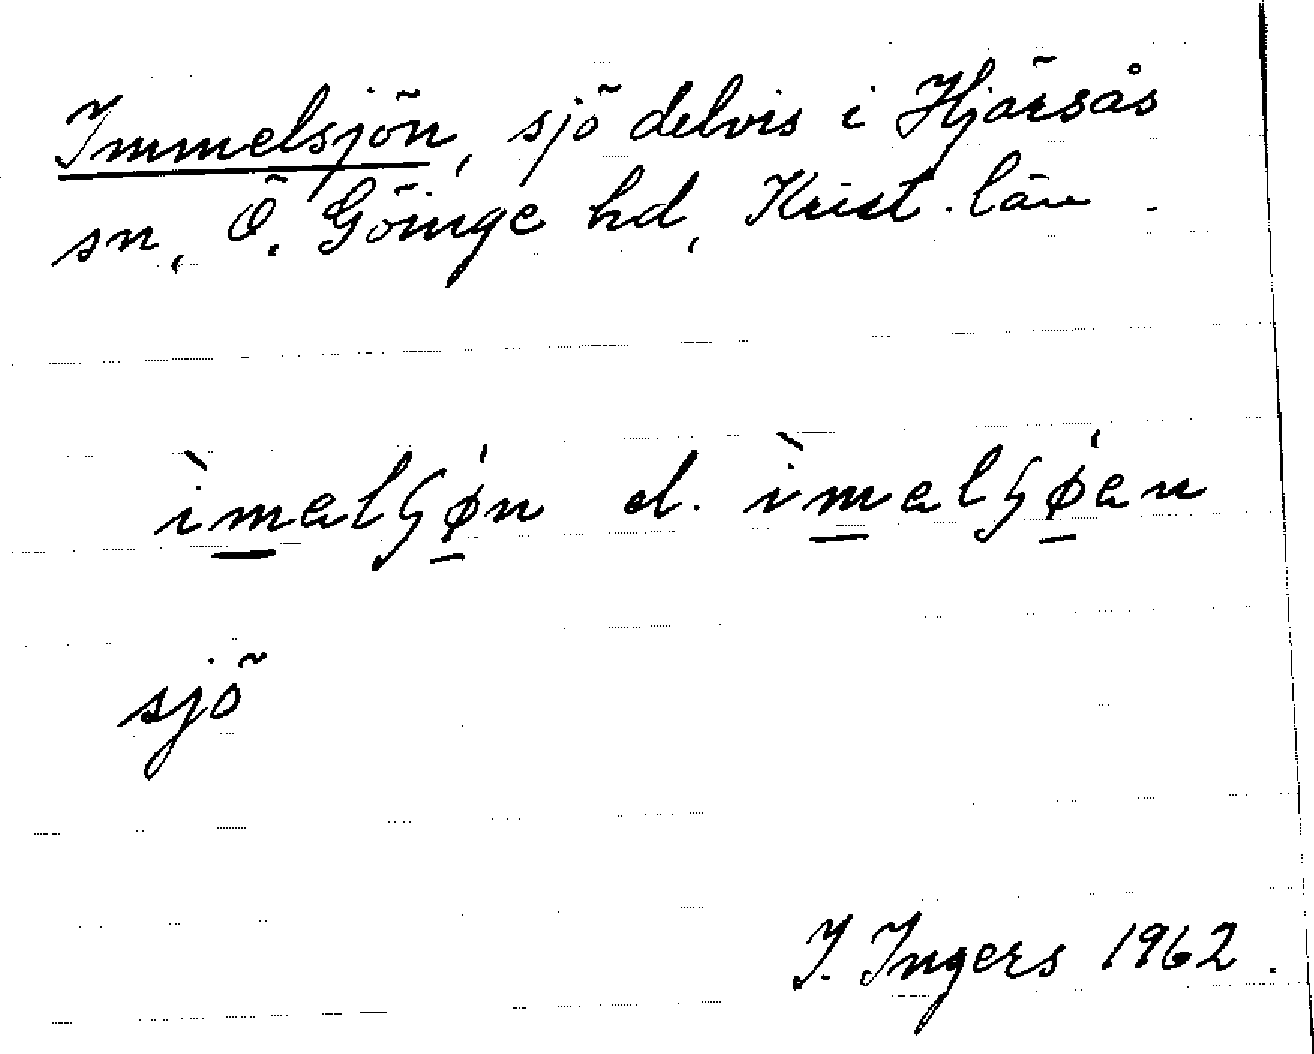 Immelsjön, sjö delvis i Hjärsås
sn, Ö. Göinge hd, Krist. län.
ìməlʃǿn el. ìməlʃǿən
sjö
I. Ingers 1962.